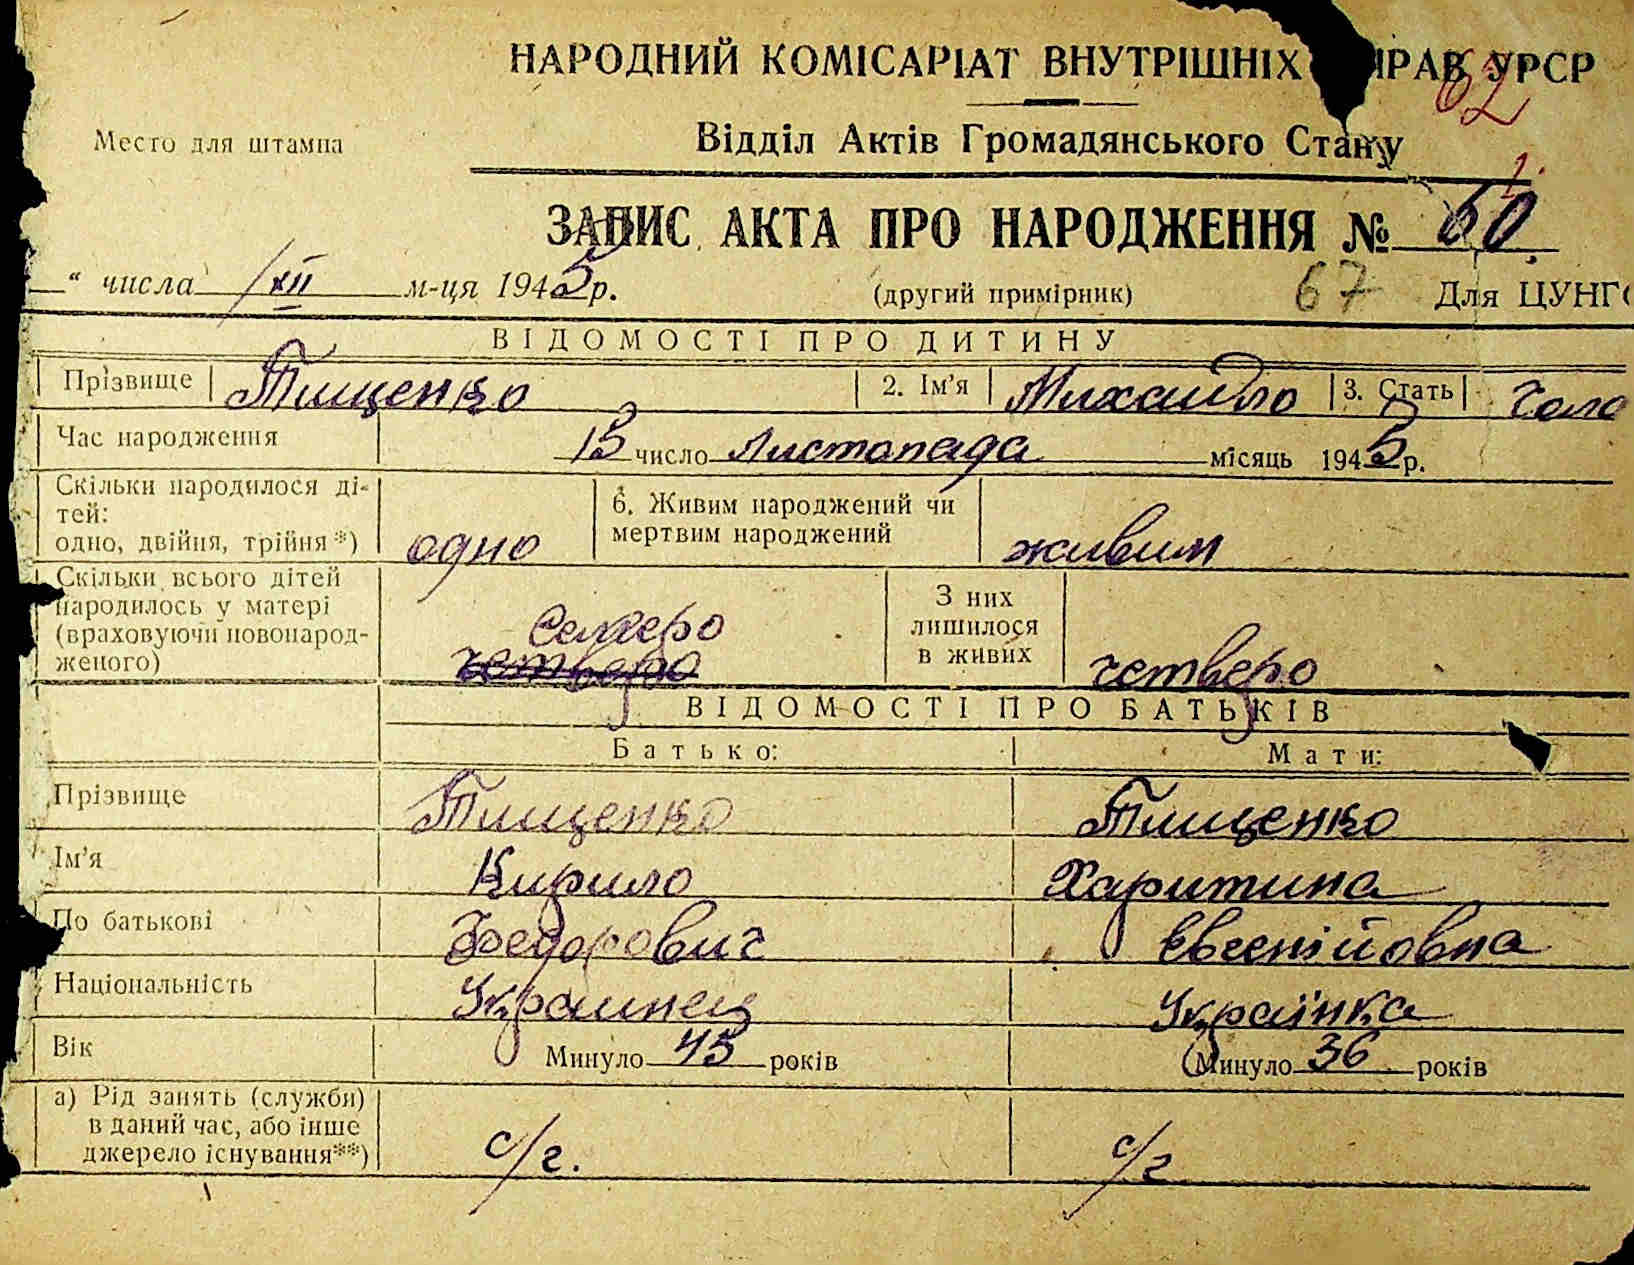 НАРОДНИЙ КОМІСАРІАТ ВНУТРІШНІХ ПРАВ УРСР
62
Место для штампа
Відділ Актів Громадянського Стану
1.
ЗАПИС АКТА ПРО НАРОДЖЕННЯ № 60
“ числа /XII м-ця 1945 р. (другий примірник) 67 Для ЦУНГ
ВІДОМОСТІ ПРО ДИТИНУ
Прізвище Тищенко 2. Ім’я Михайло 3. Стать Чоло
Час народження 15 число Листопада місяць 1945 р.
Скільки народилося ді-
тей:
одно, двійня, трійня*) одно
6. Живим народжений чи
мертвим народжений живим
Скільки всього дітей
народилось у матері
(враховуючи новонарод-
женого)
Семеро
четверо
З них
лишилося
в живих
четверо
ВІДОМОСТІ ПРО БАТЬКІВ
Батько: Мати:
Прізвище Тищенко Тищенко
Ім’я Кирило Харитина
По батькові Федорович Євгенійовна
Національність Украинец Українка
Вік Минуло 45 років Минуло 36 років
а) Рід занять (служби)
в даний час, або інше
джерело існування**)
с/г. с/г